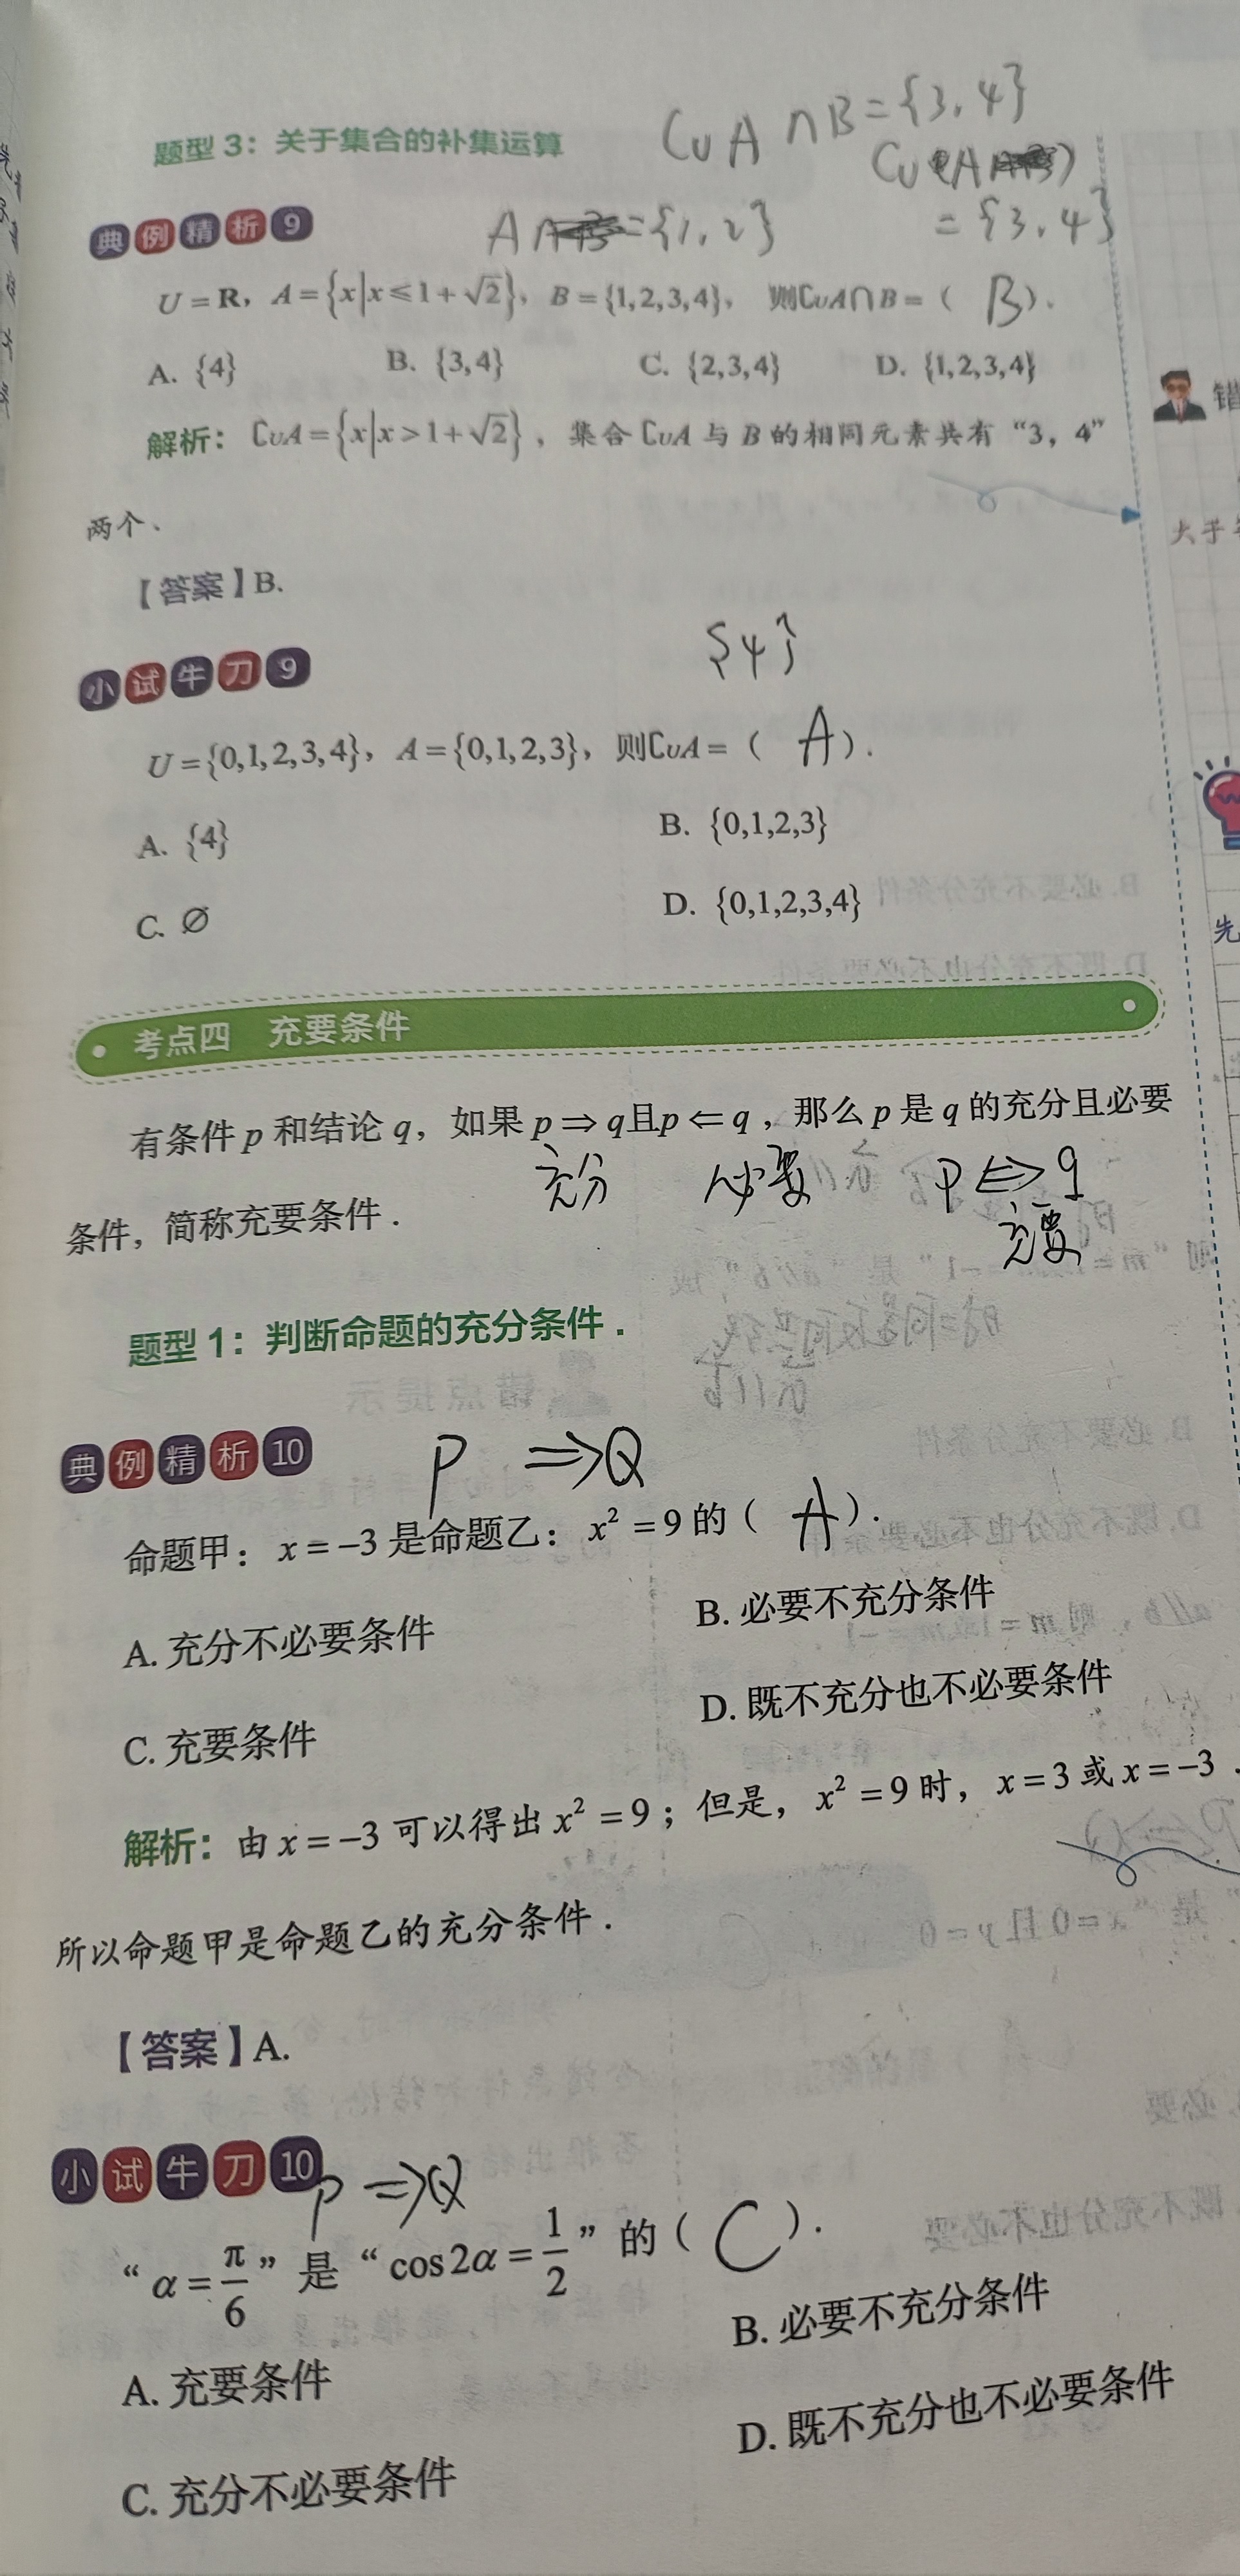 题型 3：关于集合的补集运算
∁UA∩B={3,4}
∁U(A)
={3,4}
典例精析9
A={1,2}
U=R，A={x|x≤1+√2}，B={1,2,3,4}，则∁UA∩B=（ B ）.
A. {4} B. {3,4} C. {2,3,4} D. {1,2,3,4}
解析：∁UA={x|x>1+√2}，集合∁UA与B的相同元素共有“3，4”
两个、
【答案】B.
错
大于
小试牛刀9
{4}
U={0,1,2,3,4}，A={0,1,2,3}，则∁UA=（ A ）.
A. {4} B. {0,1,2,3}
C. ∅ D. {0,1,2,3,4}
先
考点四 充要条件
有条件p和结论q，如果p⇒q且p⇐q，那么p是q的充分且必要
充分 必要 P⇔q
充要
条件，简称充要条件.
题型 1：判断命题的充分条件.
典例精析10
P ⇒Q
命题甲：x=−3是命题乙：x²=9的（ A ）.
A. 充分不必要条件 B. 必要不充分条件
C. 充要条件 D. 既不充分也不必要条件
解析：由x=−3可以得出x²=9；但是，x²=9时，x=3或x=−3.
所以命题甲是命题乙的充分条件.
【答案】A.
小试牛刀10
P ⇒Q
“α=π/6”是“cos2α=1/2”的（ C ）.
A. 充要条件 B. 必要不充分条件
C. 充分不必要条件 D. 既不充分也不必要条件